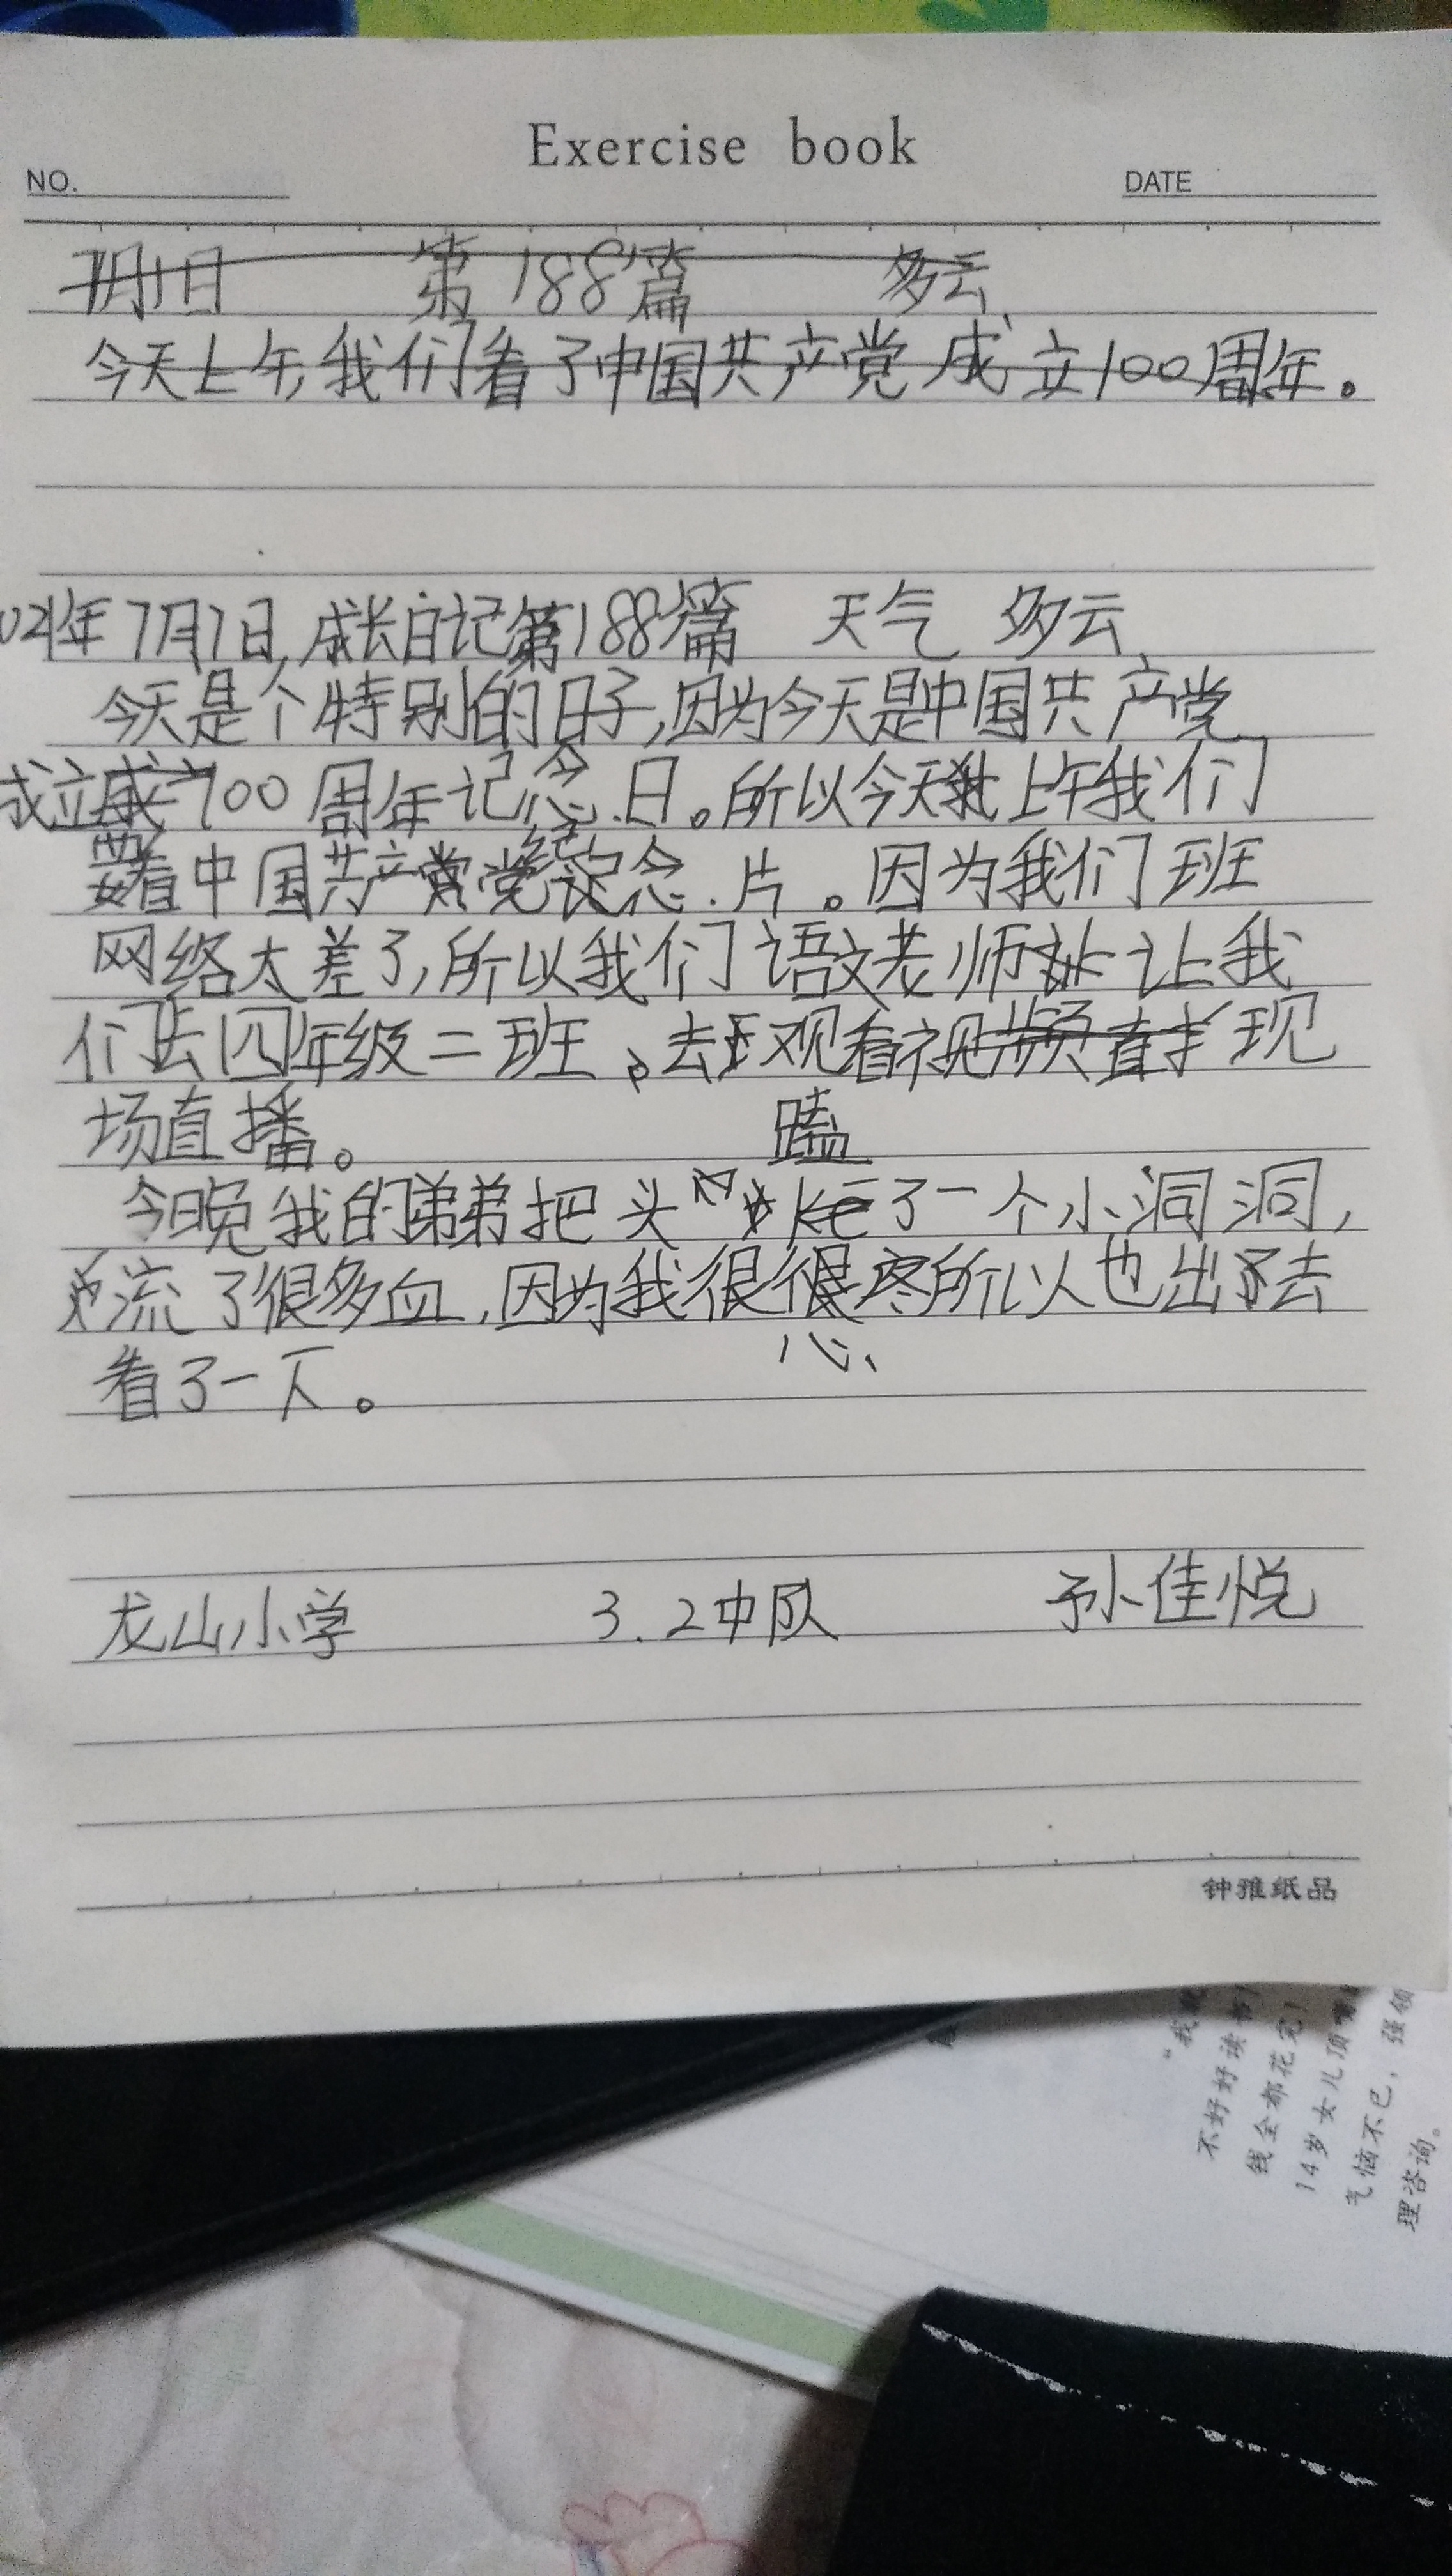 Exercise book
NO.
DATE
7月1日 第188篇 多云
今天上午,我们看了中国共产党成立100周年。
021年7月1日,成长日记第188篇 天气 多云
今天是个特别的日子,因为今天是中国共产党
成立成立100周年记念日。所以今天我上午我们
要看中国共产党党纪念片。因为我们班
网络太差了,所以我们语文老师让我
们去四年级二班。去观看视频直现
场直播。
瞌
今晚我的弟弟把头kē了一个小洞洞,
流了很多血,因为我很很疼所以也出了去
心
看了一下。
龙山小学 3.2中队 孙佳悦
钟雅纸品
"我
不好好读书
钱全都花完
14岁女儿顶嘴
气恼不已,强
理咨询。